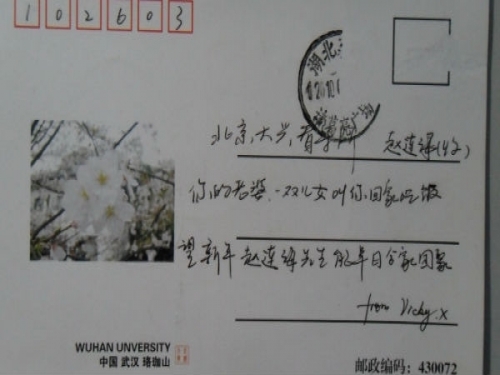 102603
湖北
北京,大兴,看守所 赵连海(收)
你的老婆,一双儿女叫你回家吃饭
望新年赵连海先生能早日合家团聚
from Vicky.x
WUHAN UNVERSITY
中国 武汉 珞珈山
邮政编码：430072